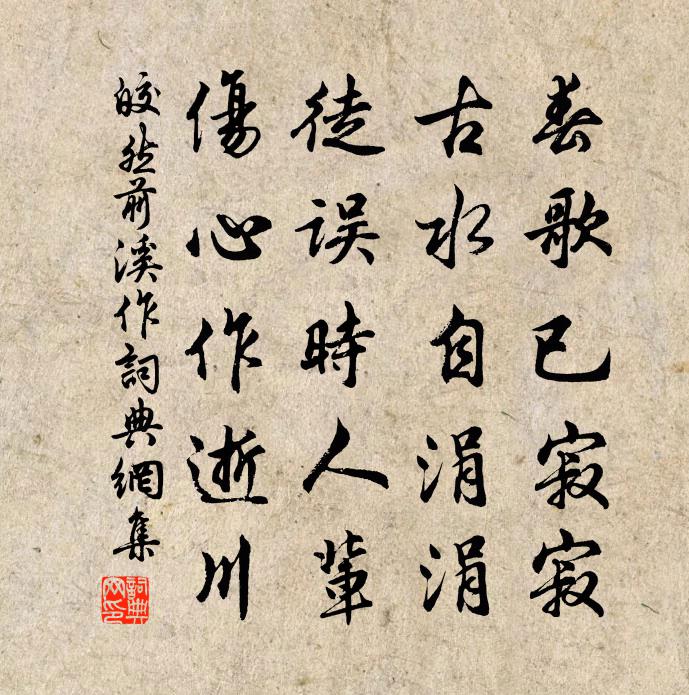 春歌已寂寂
古水自涓涓
徒誤時人輩
傷心作逝川
皎然前溪作詞典網集
詞典網印